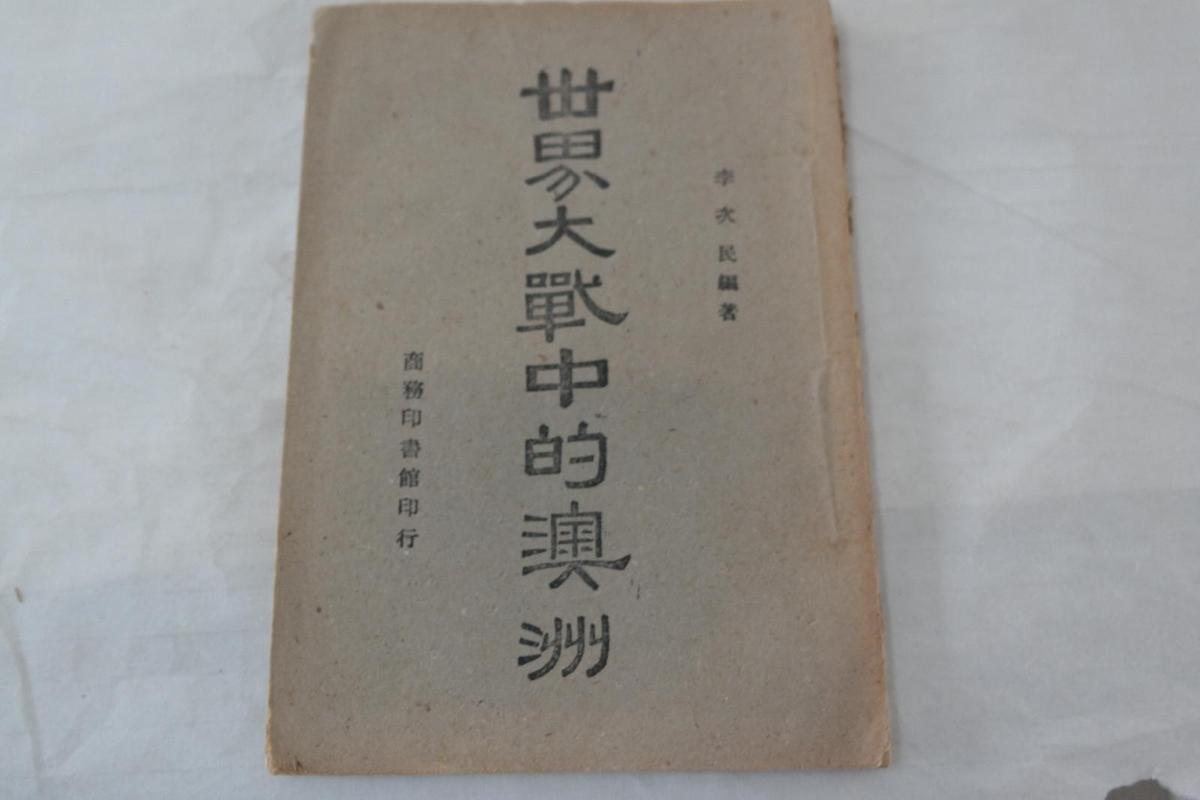 李次民編著
世界大戰中的澳洲
商務印書館印行